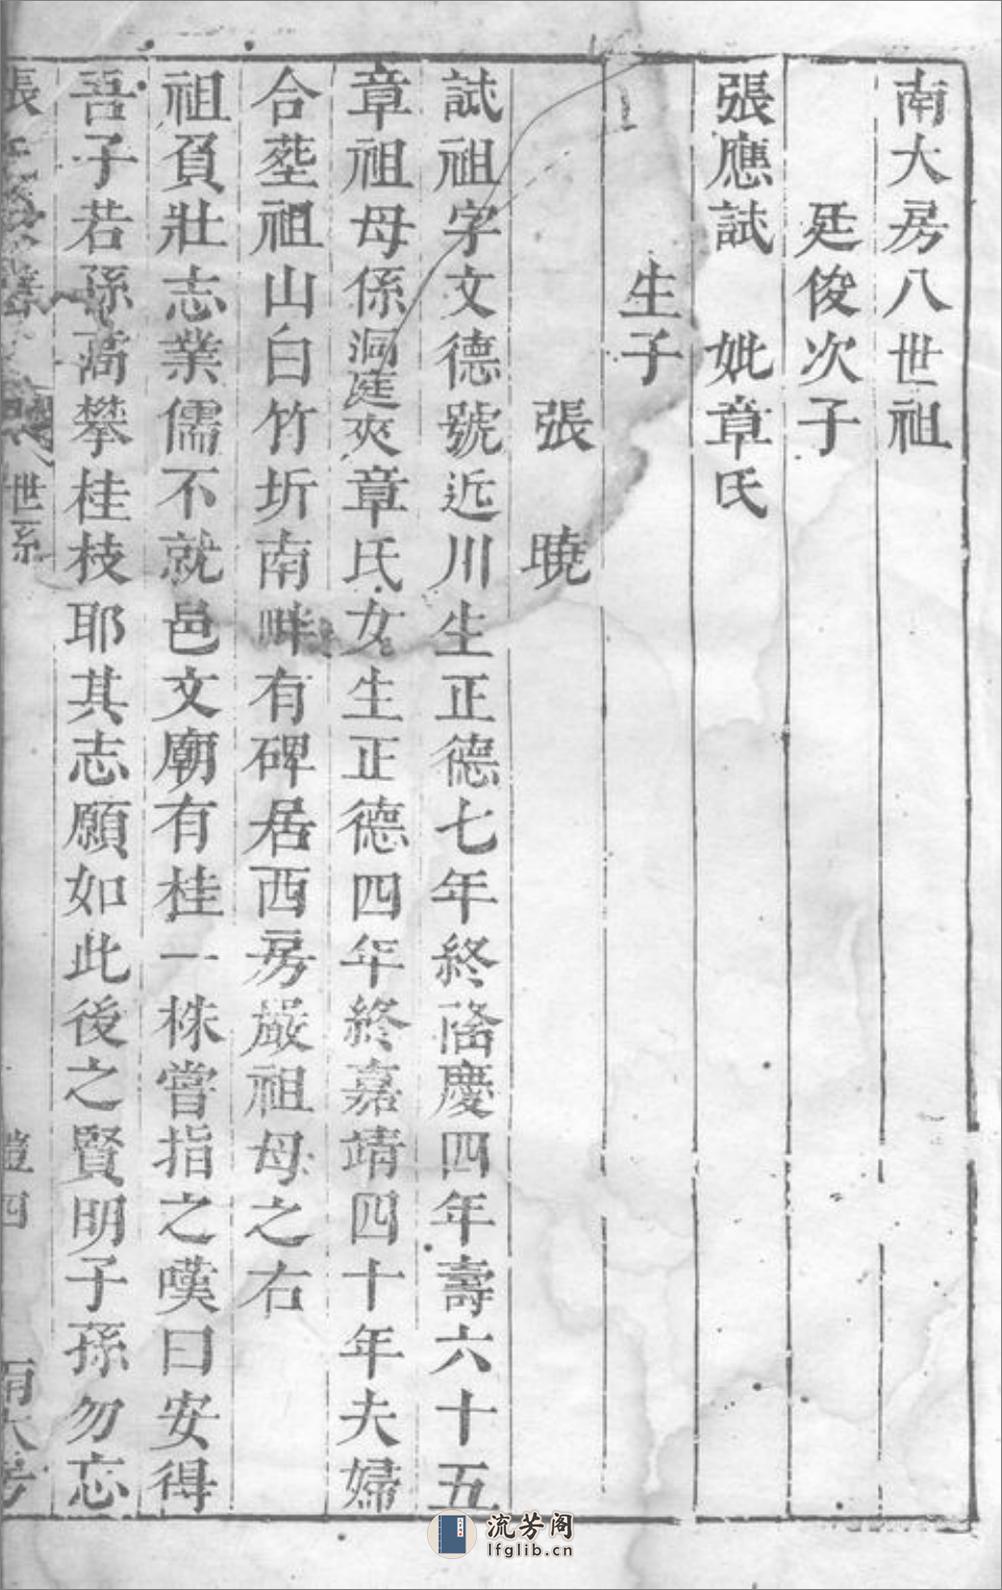 南大房八世祖
廷俊次子
張應試　妣章氏
生子
張　曉
試祖字文德號近川生正德七年終隆慶四年壽六十五
章祖母係洞庭夾章氏女生正德四年終嘉靖四十年夫婦
合塟祖山白竹圻南畔有碑居西房嚴祖母之右
祖負壯志業儒不就邑文廟有桂一株嘗指之嘆曰安得
吾子若孫高攀桂枝耶其志願如此後之賢明子孫勿忘
張
世系
四
南大房
流芳阁
lfglib.cn